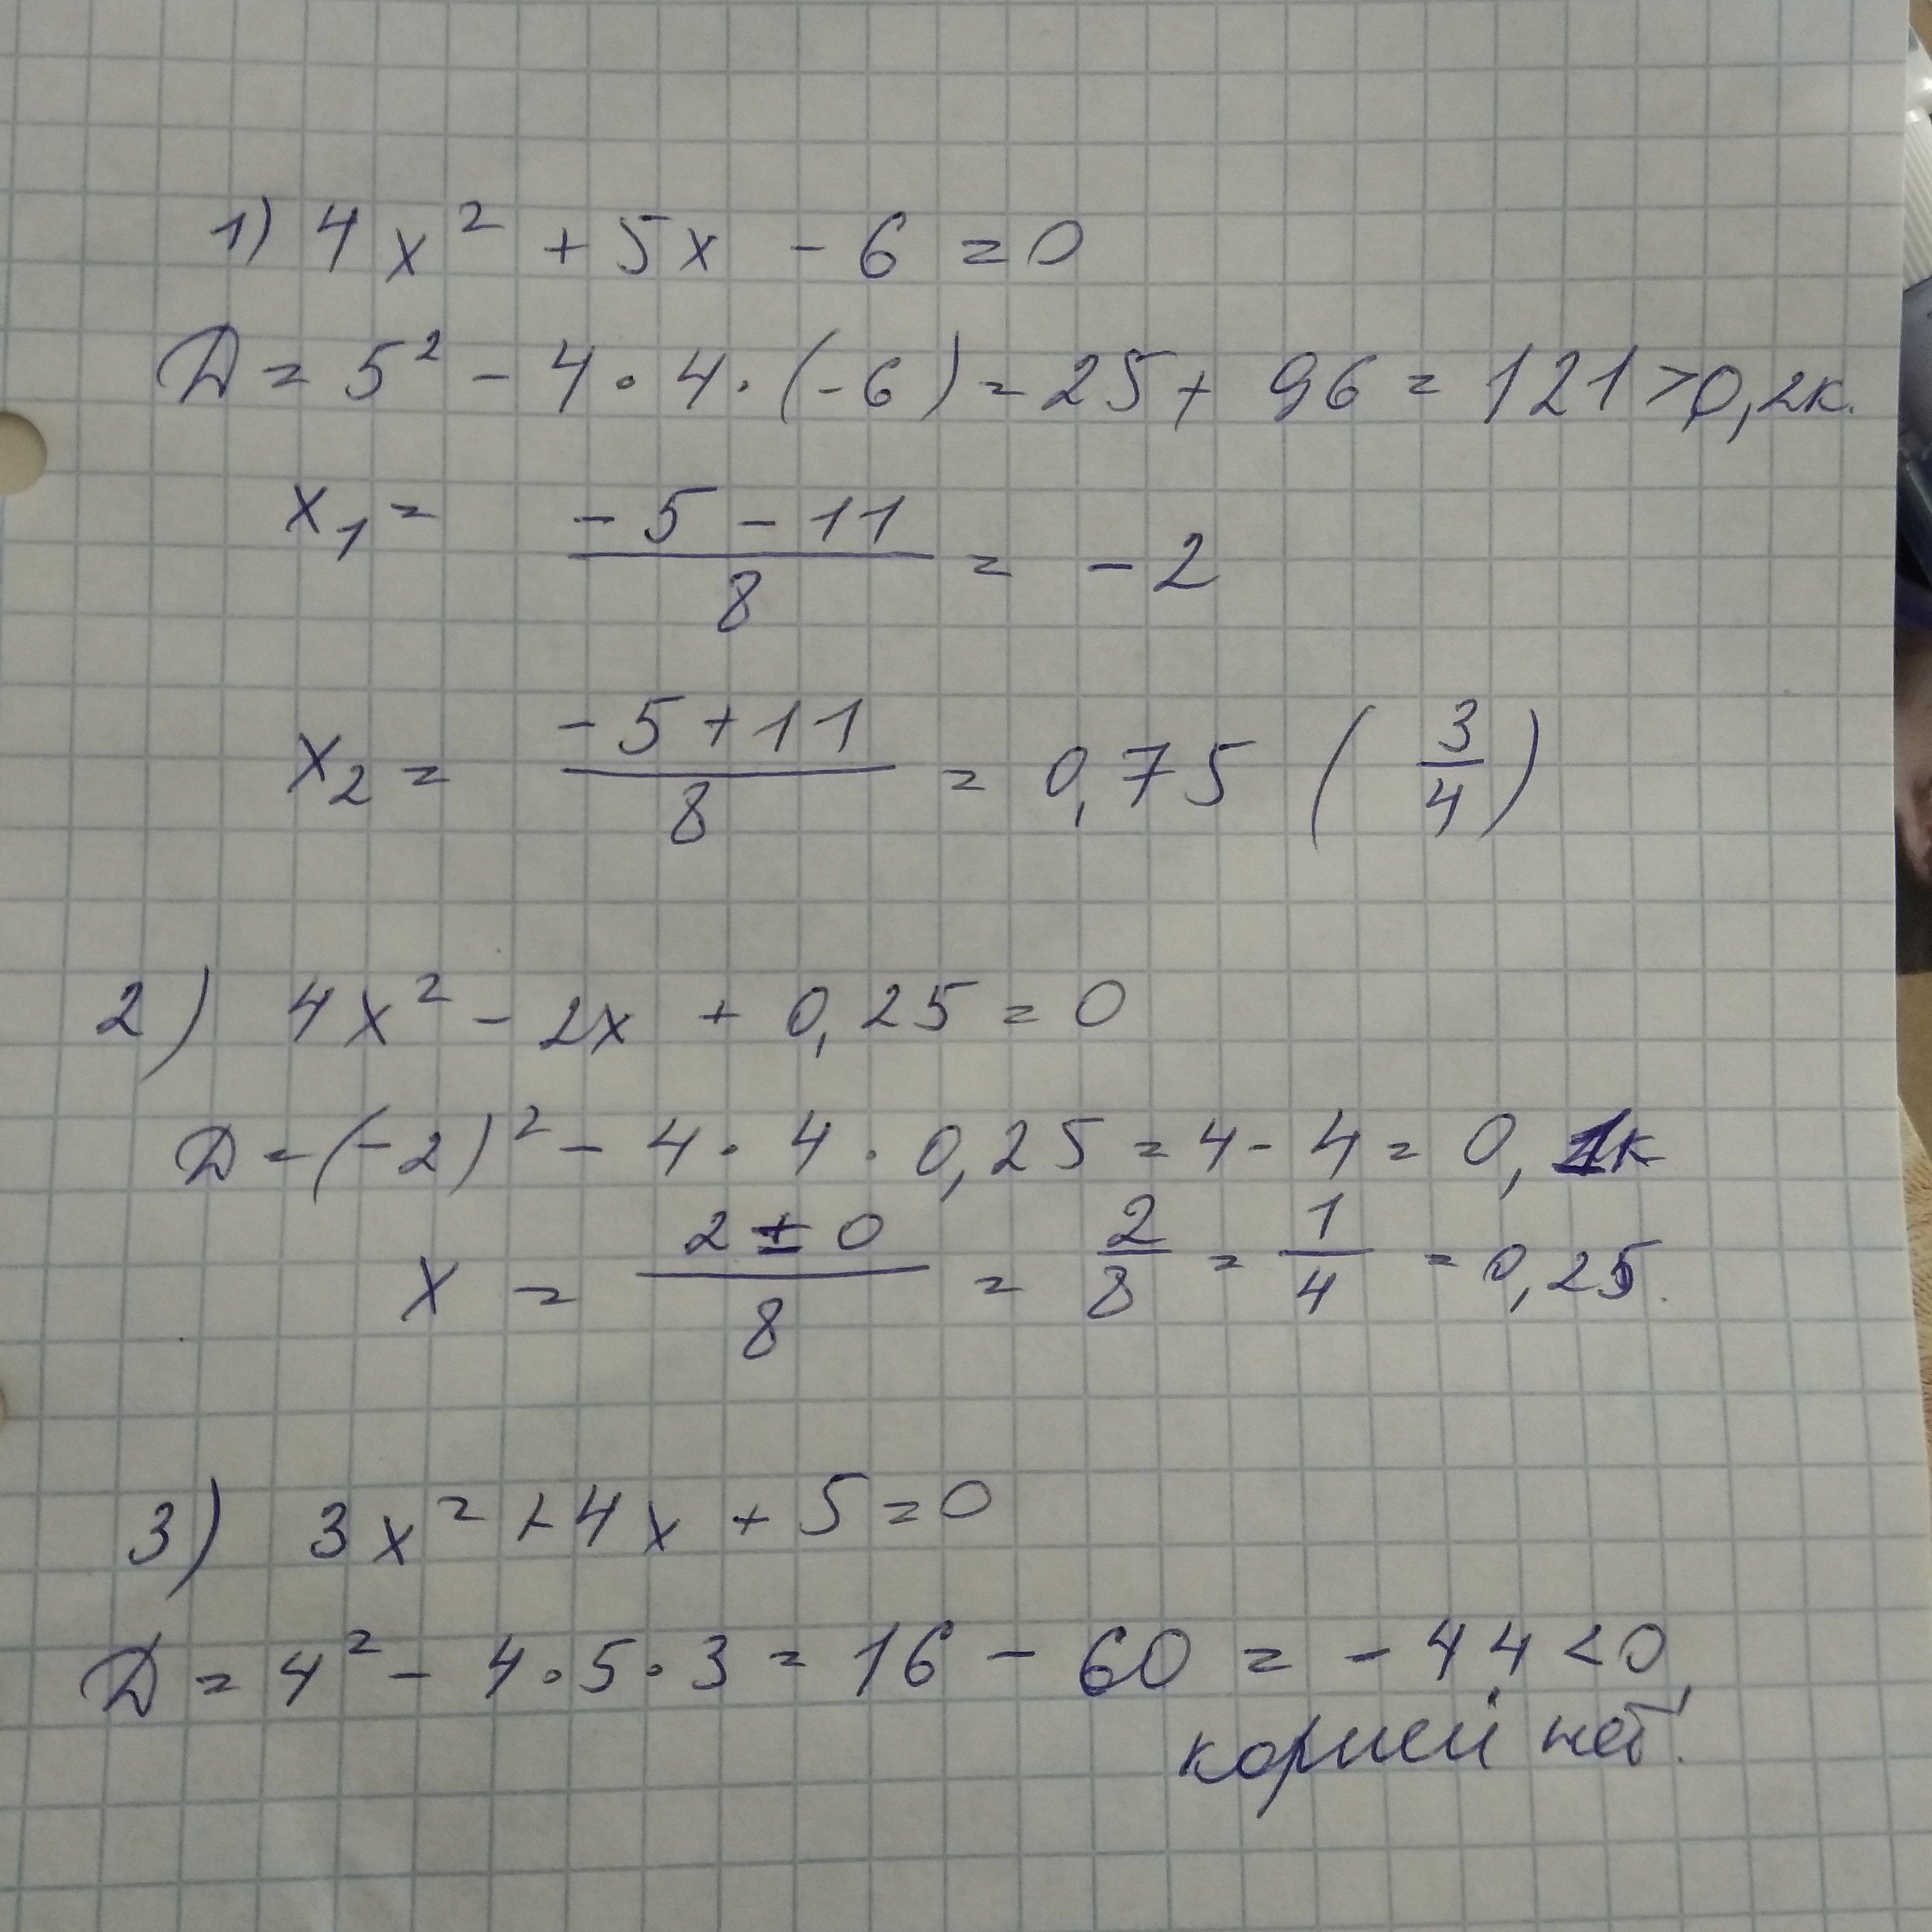 1) 4x² + 5x - 6 = 0
D = 5² - 4 · 4 · (-6) = 25 + 96 = 121 > 0, 2к.
x₁ = (-5 - 11)/8 = -2
x₂ = (-5 + 11)/8 = 0,75 (3/4)
2) 4x² - 2x + 0,25 = 0
D = (-2)² - 4 · 4 · 0,25 = 4 - 4 = 0, 1к
x = (2 ± 0)/8 = 2/8 = 1/4 = 0,25.
3) 3x² + 4x + 5 = 0
D = 4² - 4 · 5 · 3 = 16 - 60 = -44 < 0,
корней нет!